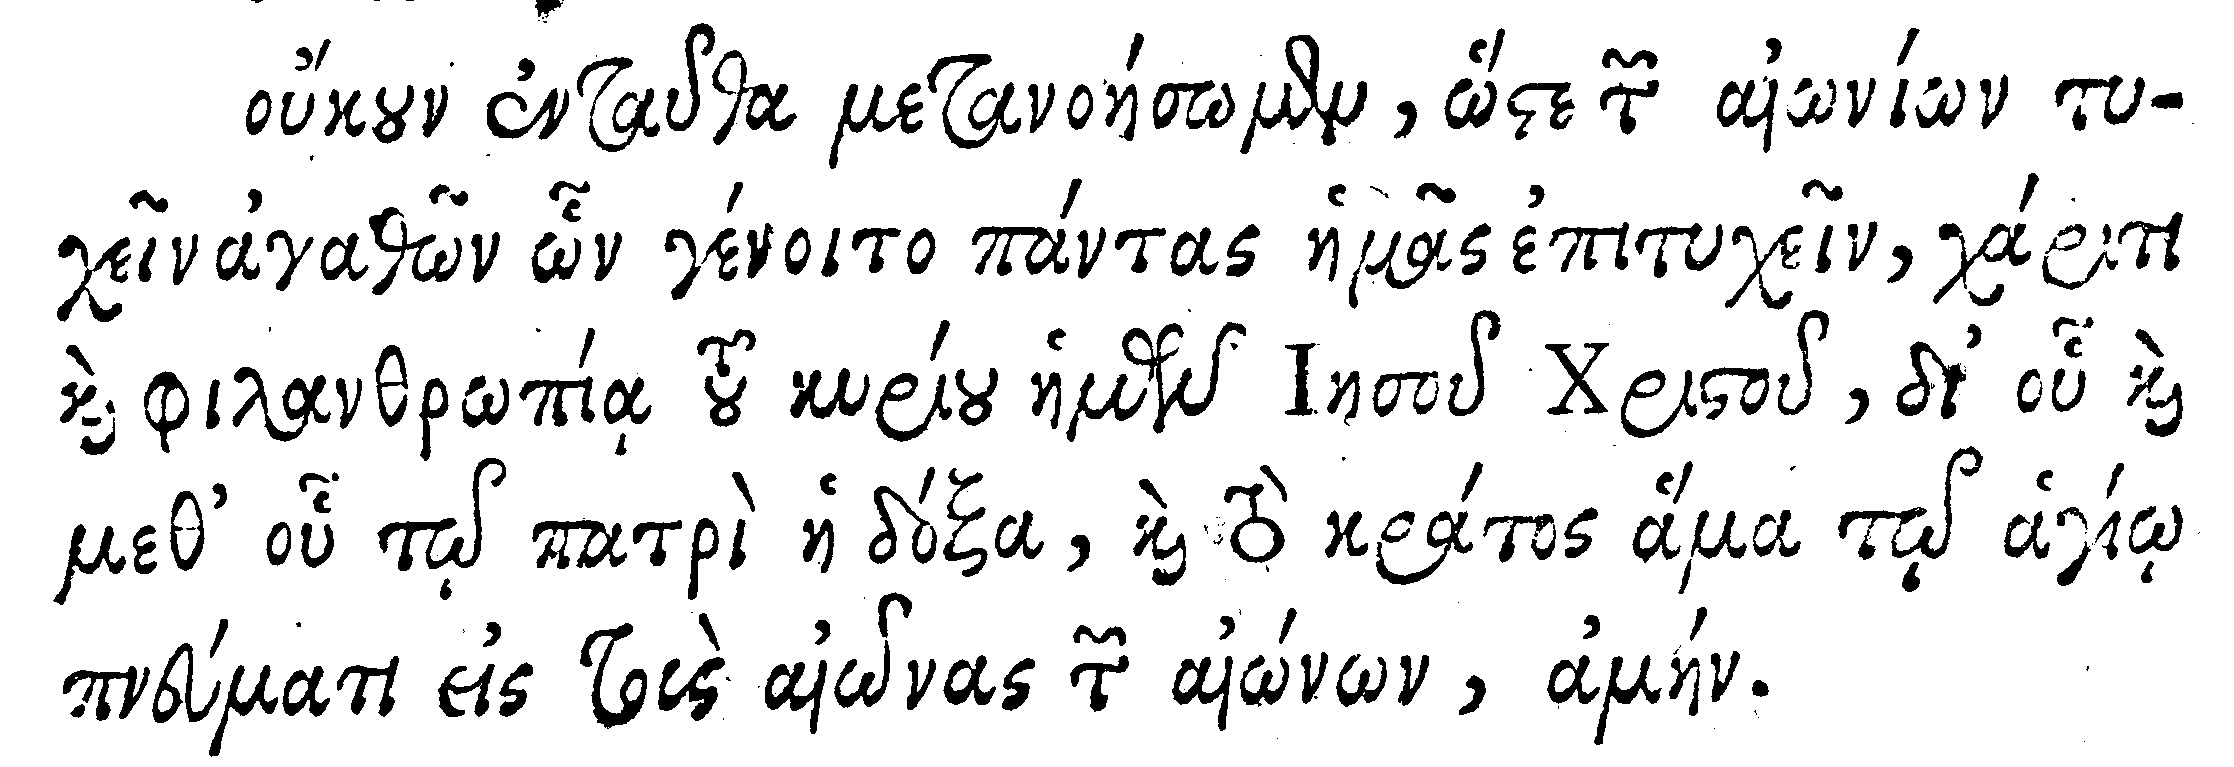 οὔκουν ἐνταῦθα μετανοήσωμεν, ὥστε τῶν αἰωνίων τυ-
χεῖν ἀγαθῶν ὧν γένοιτο πάντας ἡμᾶς ἐπιτυχεῖν, χάριτι
καὶ φιλανθρωπίᾳ τοῦ κυρίου ἡμῶν Ιησοῦ Χριστοῦ, δι’ οὗ καὶ
μεθ’ οὗ τῷ πατρὶ ἡ δόξα, καὶ τὸ κράτος ἅμα τῷ ἁγίῳ
πνεύματι εἰς τοὺς αἰῶνας τῶν αἰώνων, ἀμήν.